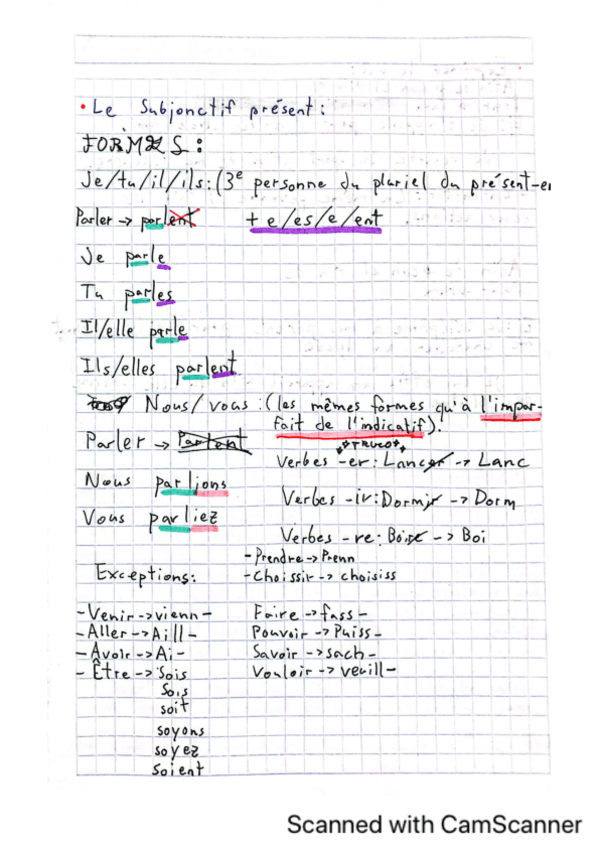 • Le Subjonctif présent:
FORMES:
Je/tu/il/ils:(3e personne du pluriel du présent-en
Parler -> parlent + e/es/e/ent
Je parle
Tu parles
Il/elle parle
Ils/elles parlent
Nous/vous:(les mêmes formes qu'à l'impar-
fait de l'indicatif).
Parler -> Parlent
*TRUCO*
Verbes -er: Lancer -> Lanc
Nous parlions
Verbes -ir: Dormir -> Dorm
Vous parliez
Verbes -re: Boire -> Boi
-Prendre->Prenn
Exceptions: -Choissir-> choisiss
-Venir->vienn- Faire ->fass-
-Aller->Aill- Pouvoir ->Puiss-
-Avoir->Ai- Savoir ->sach-
-Être->Sois Vouloir->veuill-
Sois
soit
soyons
soyez
soient
Scanned with CamScanner